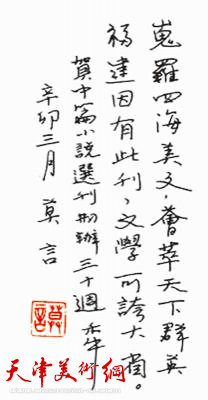 嵬羅四海美文，薈萃天下群英
福建因有此刊，文學可誇大。
賀中篇小說選刊刱辦三十週年
辛卯三月 莫言
莫言
天津美術網